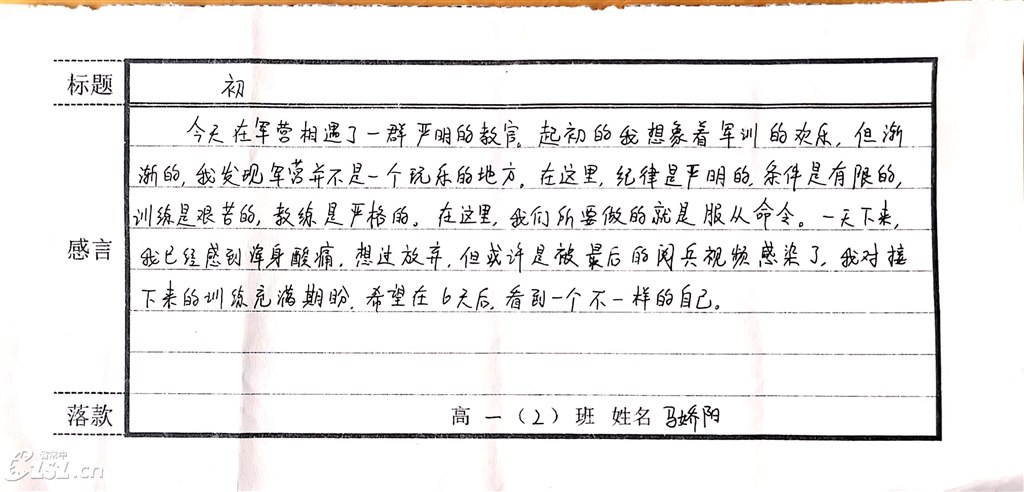 标题 初
今天在军营相遇了一群严明的教官。起初的我想象着军训的欢乐，但渐
渐的，我发现军营并不是一个玩乐的地方。在这里，纪律是严明的，条件是有限的，
训练是艰苦的，教练是严格的。在这里，我们所要做的就是服从命令。一天下来，
感言 我已经感到浑身酸痛，想过放弃，但或许是被最后的阅兵视频感染了，我对接
下来的训练充满期盼，希望在6天后，看到一个不一样的自己。
落款 高一（2）班 姓名 马娇阳
LSL.cn